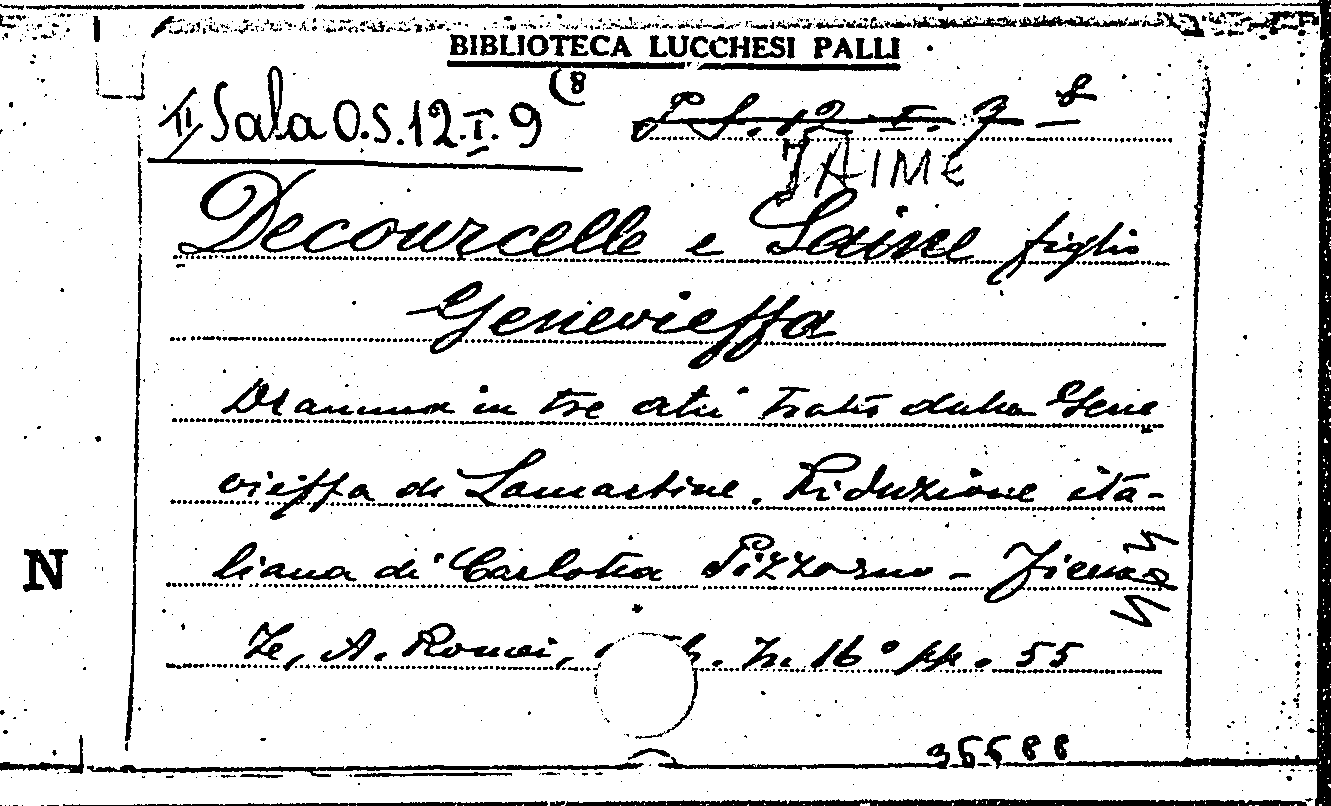 BIBLIOTECA LUCCHESI PALLI
II Sala O.S.12.I.9 (8
P S. 12 I. 7 8
JAIME
Decourcelle e Jaime figlio
Genevieffa
Dramma in tre atti tratto dalla Gene
vieffa di Lamartine. Riduzione ita-
liana di Carlotta Pizzorno - Firen
N
ze, A. Romei, 16° pp. 55
36688